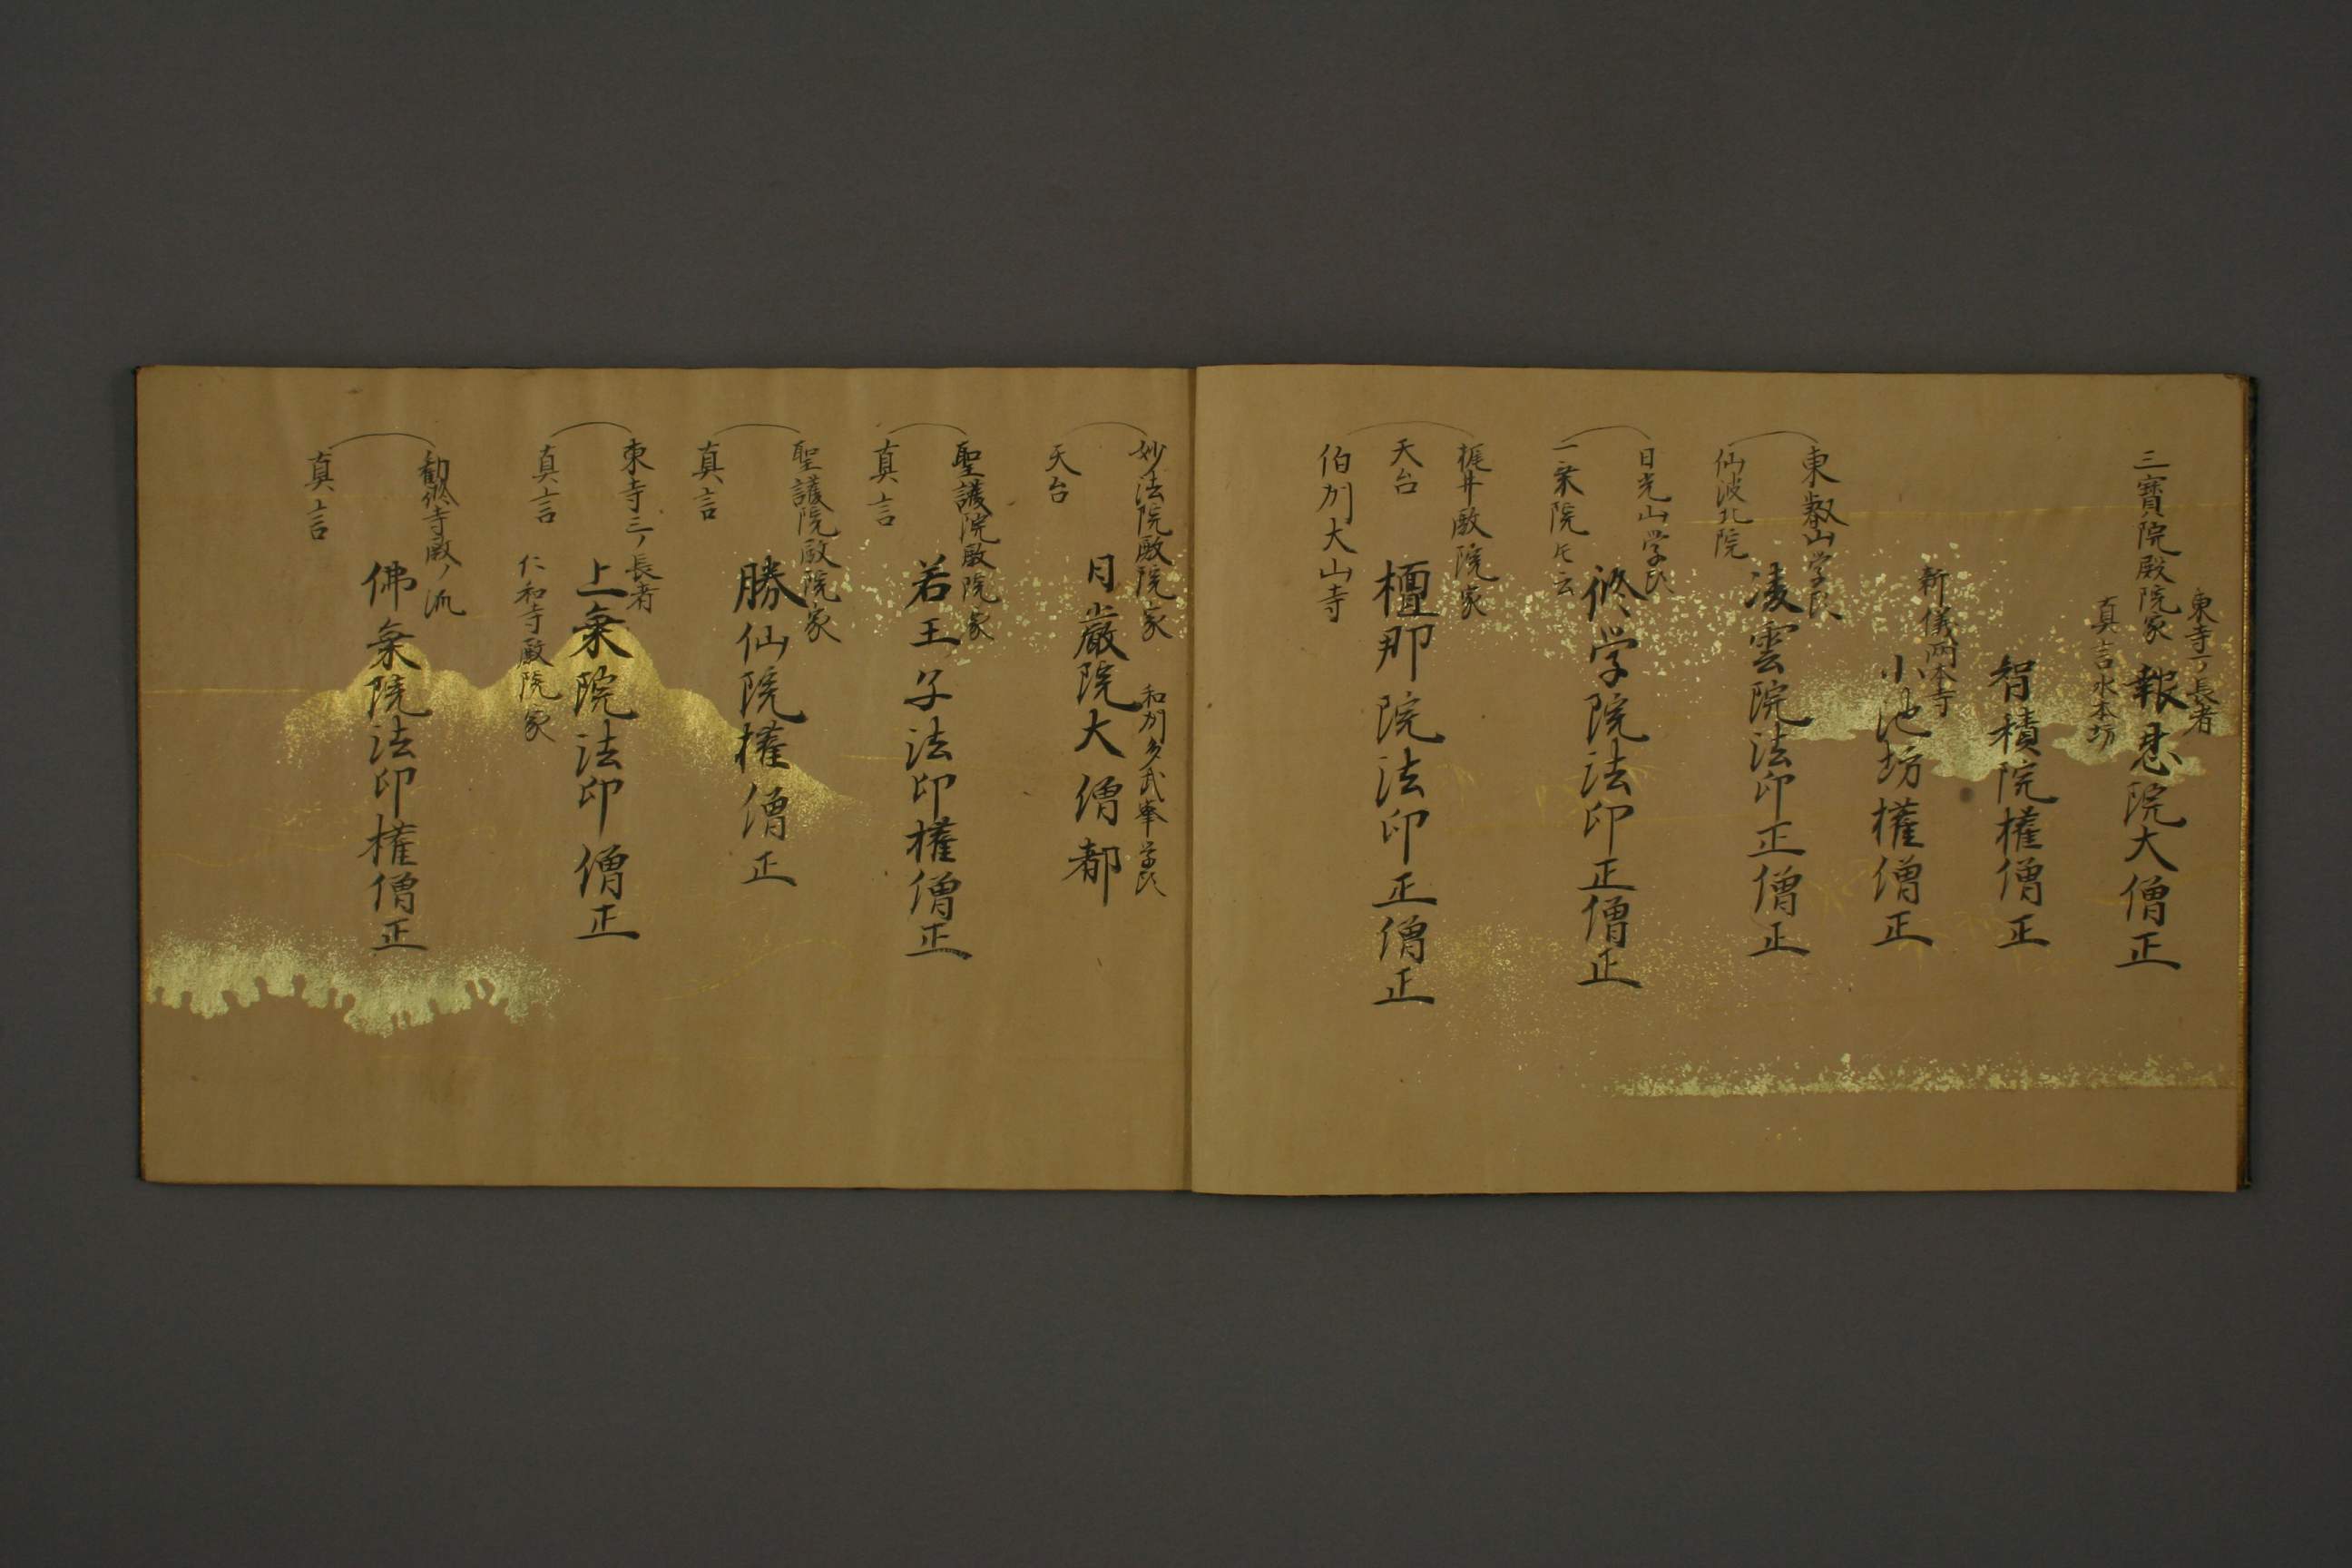 東寺一ノ長者
三寳院殿院家
報恩院大僧正
真言水本坊
智積院権僧正
新儀両本寺
小池坊権僧正
東叡山学頭
凌雲院法印正僧正
仙波北院
日光山学頭
修学院法印正僧正
一乗院トモ云
梶井殿院家
天台
檀那院法印正僧正
伯州大山寺
妙法院殿院家
和州多武峯学頭
日嚴院大僧都
天台
聖護院殿院家
若王子法印権僧正
真言
聖護院殿院家
勝仙院権僧正
真言
東寺三ノ長者
上乗院法印僧正
真言
仁和寺殿院家
勧修寺殿ノ流
佛乗院法印権僧正
真言